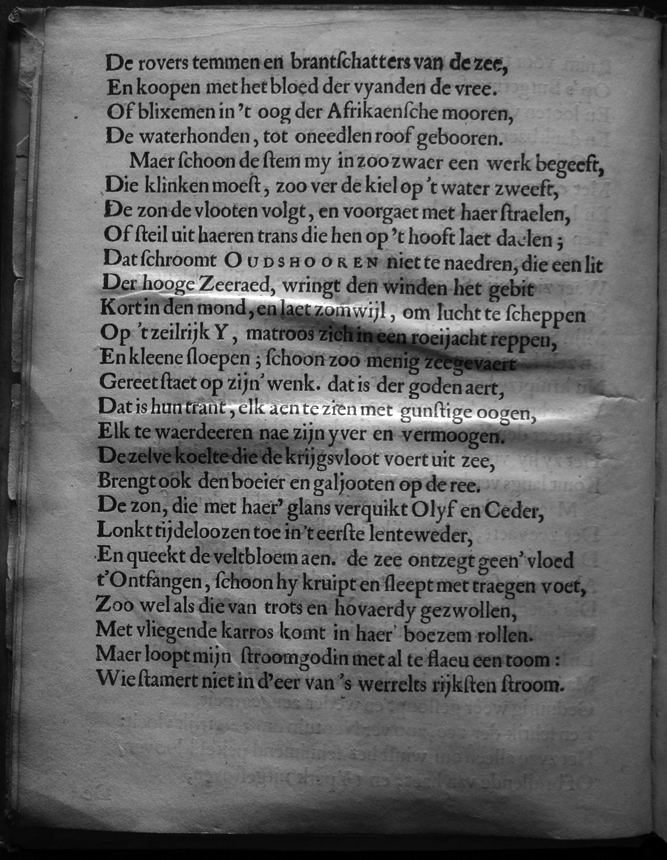 De rovers temmen en brantſchatters van de zee,
En koopen met het bloed der vyanden de vree.
Of blixemen in 't oog der Afrikaenſche mooren,
De waterhonden, tot oneedlen roof gebooren.
Maer ſchoon de ſtem my in zoo zwaer een werk begeeft,
Die klinken moeſt, zoo ver de kiel op 't water zweeft,
De zon de vlooten volgt, en voorgaet met haer ſtraelen,
Of ſteil uit haeren trans die hen op 't hooft laet daelen;
Dat ſchroomt OUDSHOOREN niet te naedren, die een lit
Der hooge Zeeraed, wringt den winden het gebit
Kort in den mond, en laet zomwijl, om lucht te ſcheppen
Op 't zeilrijk Y, matroos zich in een roeijacht reppen,
En kleene ſloepen; ſchoon zoo menig zeegevaert
Gereet ſtaet op zijn' wenk. dat is der goden aert,
Dat is hun trant, elk aen te zien met gunſtige oogen,
Elk te waerdeeren nae zijn yver en vermoogen.
De zelve koelte die de krijgsvloot voert uit zee,
Brengt ook den boeier en galjooten op de ree.
De zon, die met haer' glans verquikt Olyf en Ceder,
Lonkt tijdeloozen toe in 't eerſte lenteweder,
En queekt de veltbloem aen. de zee ontzegt geen' vloed
t'Ontfangen, ſchoon hy kruipt en ſleept met traegen voet,
Zoo wel als die van trots en hovaerdy gezwollen,
Met vliegende karros komt in haer' boezem rollen.
Maer loopt mijn ſtroomgodin met al te ſlaeu een toom:
Wie ſtamert niet in d'eer van 's werrelts rijkſten ſtroom.